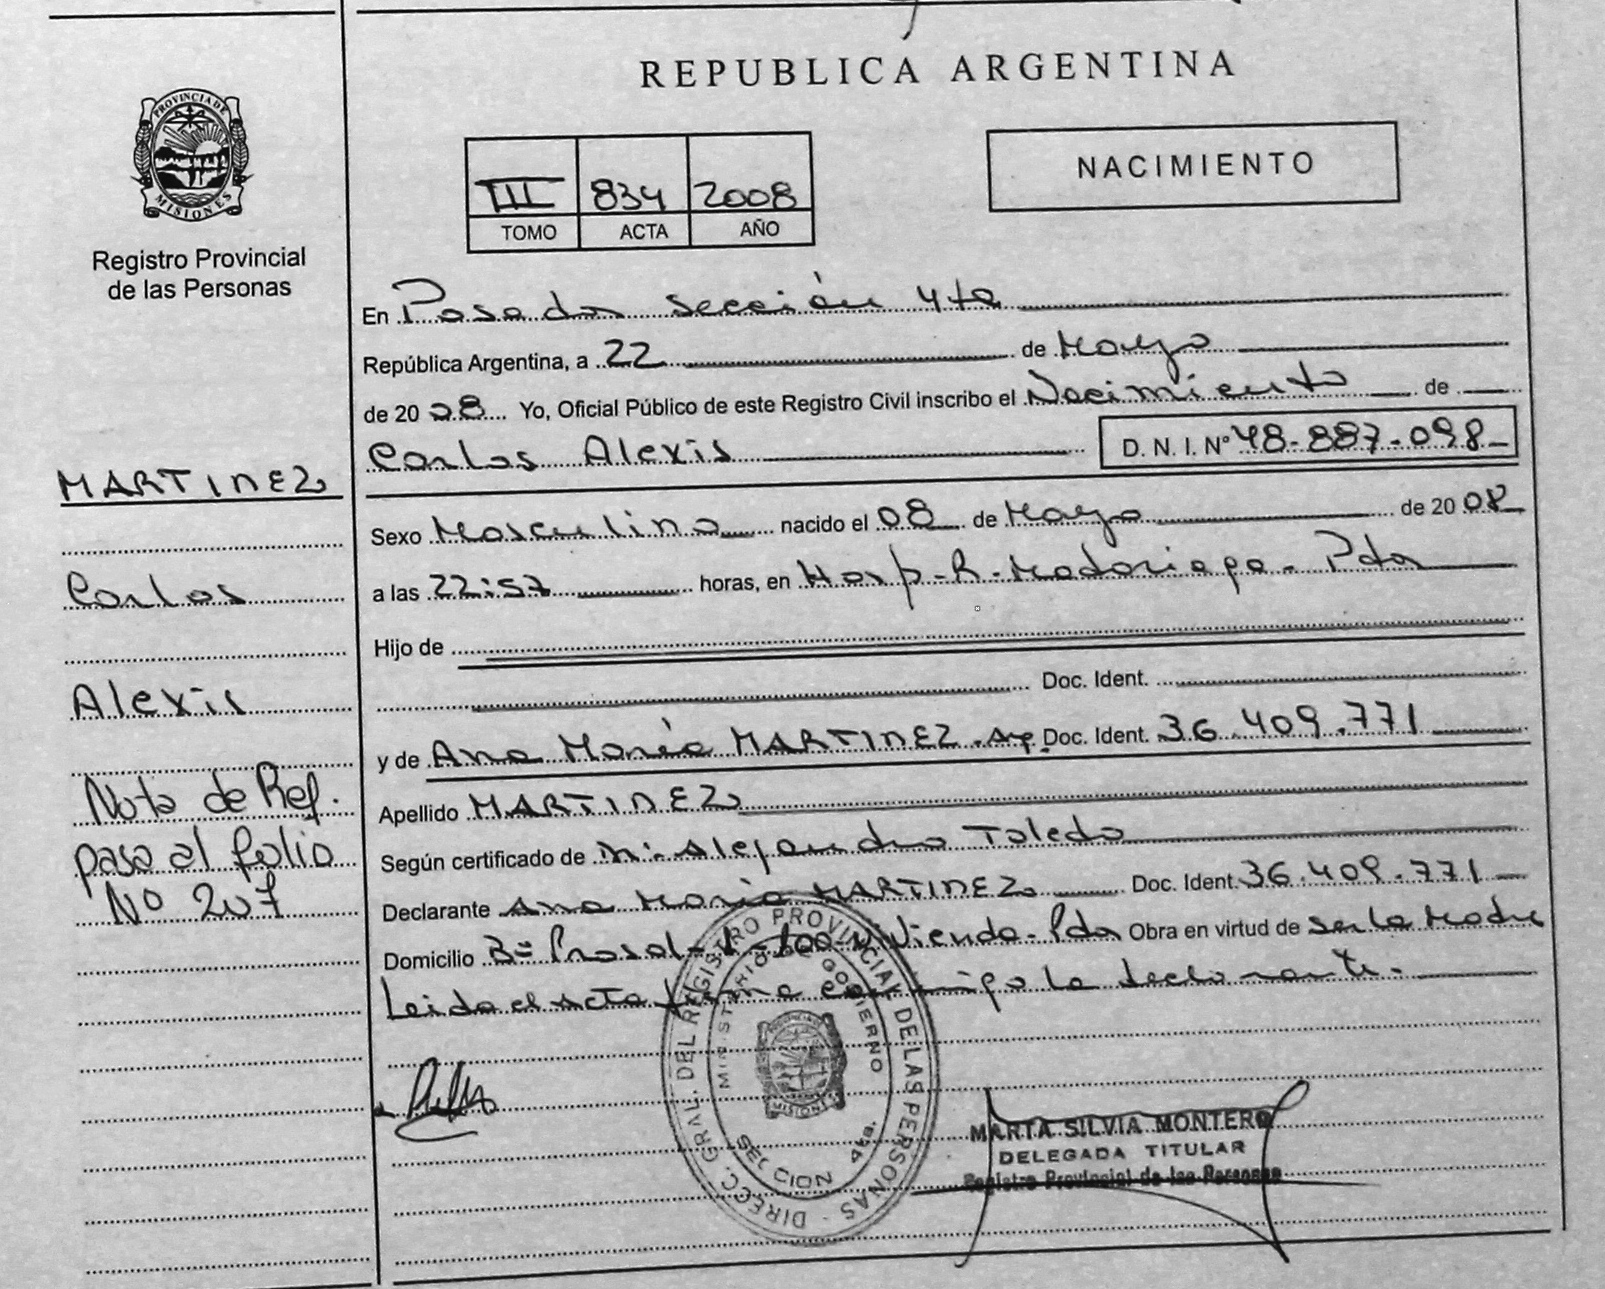 REPUBLICA ARGENTINA
PROVINCIA DE
MISIONES
Registro Provincial
de las Personas
NACIMIENTO
III 834 2008
TOMO ACTA AÑO
En Posadas sección 4ta
República Argentina, a 22 de Mayo
de 20 08 Yo, Oficial Público de este Registro Civil inscribo el Nacimiento de
Carlos Alexis D. N. I. Nº 48-887-098
MARTINEZ
Carlos
Alexis
Nota de Ref.
pasa al folio
Nº 207
Sexo Masculino nacido el 08 de Mayo de 20 08
a las 22:57 horas, en Hosp-R-Madariaga- Pdas
Hijo de
Doc. Ident.
y de Ana María MARTINEZ - Arg. Doc. Ident. 36.409.771
Apellido MARTINEZ
Según certificado de Alejandro Toledo
Declarante Ana María MARTINEZ Doc. Ident. 36.409.771
Domicilio Bº Prosol-1-100-Vivienda-Pdas Obra en virtud de ser la Madre
Leida el acta firma conmigo la declarante.-
DIRECC. GRAL. DEL REGISTRO PROVINCIAL DE LAS PERSONAS -
MINISTERIO DE GOBIERNO
MISIONES
SECCION 4ta.
MARTA SILVIA MONTERO
DELEGADA TITULAR
Registro Provincial de las Personas